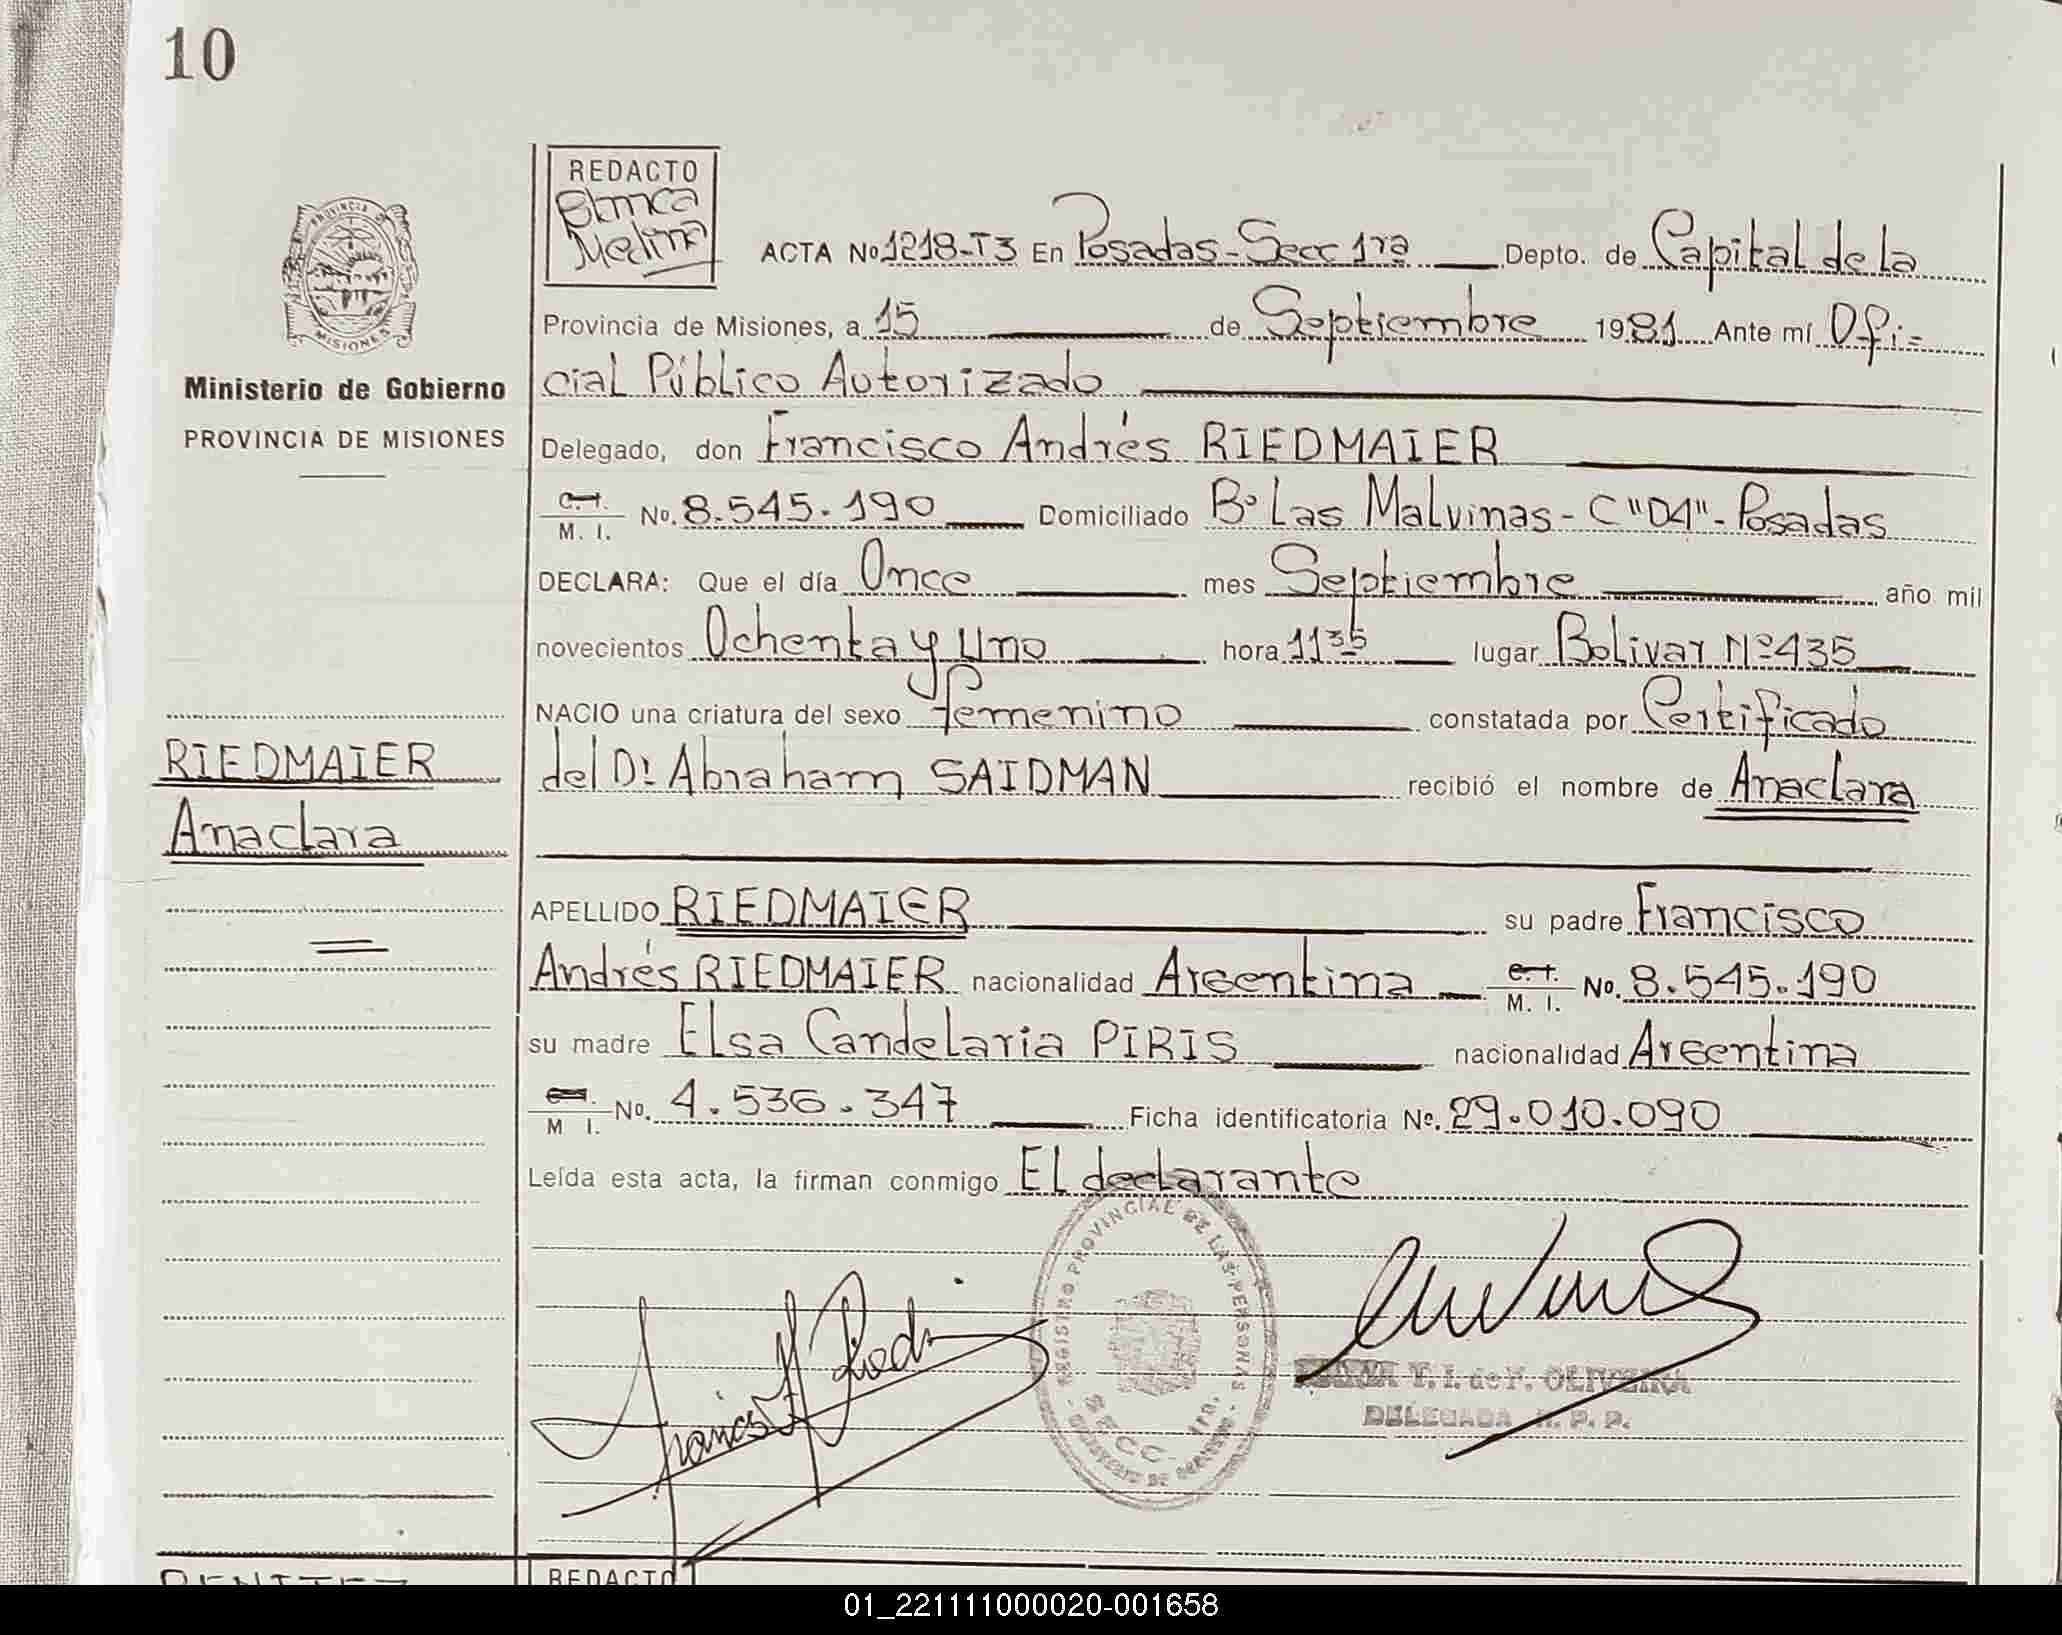 10
REDACTO
Blanca
Medina
ACTA No 1218-T3 En Posadas-Secc 1ra Depto. de Capital de la
Provincia de Misiones, a 15 de Septiembre 1981 Ante mí Ofi=
cial Público Autorizado
Delegado, don Francisco Andrés RIEDMAIER
C. I.
M. I. No. 8.545.190 Domiciliado Bº Las Malvinas-C "D4"-Posadas
DECLARA: Que el día Once mes Septiembre año mil
novecientos Ochenta y Uno hora 11 35 lugar Bolivar Nº435
NACIO una criatura del sexo femenino constatada por Certificado
del Dr Abraham SAIDMAN recibió el nombre de Anaclara
APELLIDO RIEDMAIER su padre Francisco
Andrés RIEDMAIER nacionalidad Argentina C. I.
M. I. No. 8.545.190
su madre Elsa Candelaria PIRIS nacionalidad Argentina
M I. No. 4.536.347 Ficha identificatoria No. 29.010.090
Leída esta acta, la firman conmigo El declarante
PROVINCIA DE
MISIONES
Ministerio de Gobierno
PROVINCIA DE MISIONES
RIEDMAIER
Anaclara
REGISTRO PROVINCIAL DE LAS PERSONAS
SECC. 1ra.
MINISTERIO DE GOBIERNO
T. I. de F. OLIVEIRA
DELEGADA R. P. P.
BENITEZ
REDACTO
01_221111000020-001658